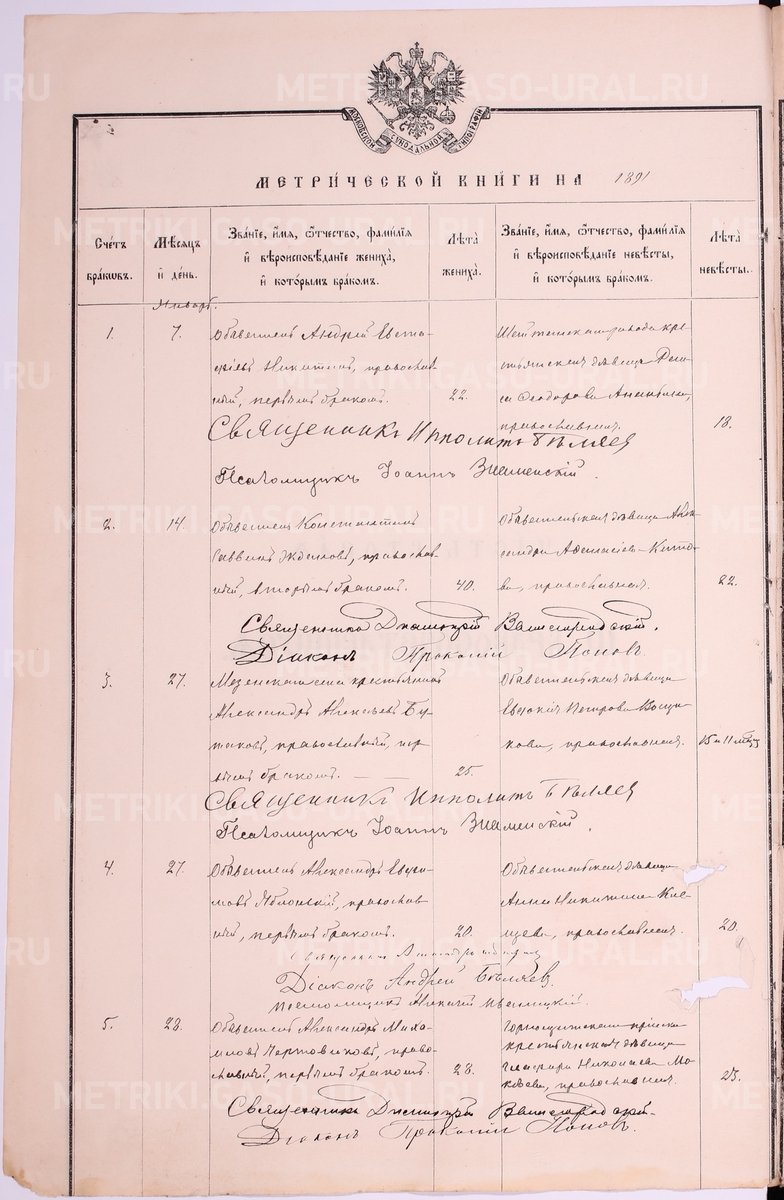 ДУХОВНОЙ СѴНОДАЛЬНОЙ ТИПОГРАФІИ
МЕТРИ́ЧЕСКОЙ КНИ́ГИ НА 1891
Счётъ бра́кѡвъ.
Мѣ́сяцъ и҆ де́нь.
Зва́нїе, и҆́мя, ѻ҆́тчество, фами́лїя и҆ вѣроисповѣ́данїе жениха̀, и҆ кото́рымъ бра́комъ.
Лѣ́та жениха̀.
Зва́нїе, и҆́мя, ѻ҆́тчество, фами́лїя и҆ вѣроисповѣ́данїе невѣ́сты, и҆ кото́рымъ бра́комъ.
Лѣ́та невѣ́сты.
Январь.
1. 7. Обыватель Андрей
Никитинъ, православ-
ный, первымъ бракомъ. 22.
Шайтанскаго завода кре-
стьянская дѣвица
Феодорова
православная. 18.
Священникъ Ипполитъ Бѣляев
Псаломщикъ Іоаннъ Знаменскій.
2. 14. Обыватель Константинъ
Саввинъ православ-
ный, вторымъ бракомъ. 40.
Обывательская дѣвица Алек-
сандра Аѳанасіева Кито-
ва, православная. 22.
Священникъ Димитрій
Діаконъ Прокопій Поповъ
3. 27. Мезенскаго села крестьянинъ
Александръ Алексѣевъ Бу-
таковъ, православный, пер-
вымъ бракомъ. 25.
Обывательская дѣвица
Евдокія Петрова
кова, православная. 15 и 11 мѣсяц
Священникъ Ипполитъ Бѣляев
Псаломщикъ Іоаннъ Знаменскій.
4. 27. Обыватель Александръ Ефи-
мовъ Яблонскій, православ-
ный, первымъ бракомъ. 20.
Обывательская дѣвица
Анна Никитина Кле-
щева, православная. 20.
Священникъ
Діаконъ Андрей Бѣляев
псаломщикъ Алексѣй
5. 28. Обыватель Александръ Миха-
иловъ Чертовиковъ, право-
славный, первымъ бракомъ. 28.
Горнощитскаго
крестьянская дѣвица
Глафира Николаева Мо-
кѣева, православная. 23.
Священникъ Димитрій
Діаконъ Прокопій Поповъ.
METRIKI.GASO-URAL.RU